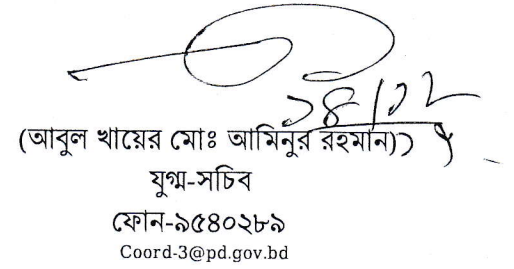 (আবুল খায়ের মোঃ আমিনুর রহমান)
যুগ্ম-সচিব
ফোন-৯৫৪০২৮৯
Coord-3@pd.gov.bd